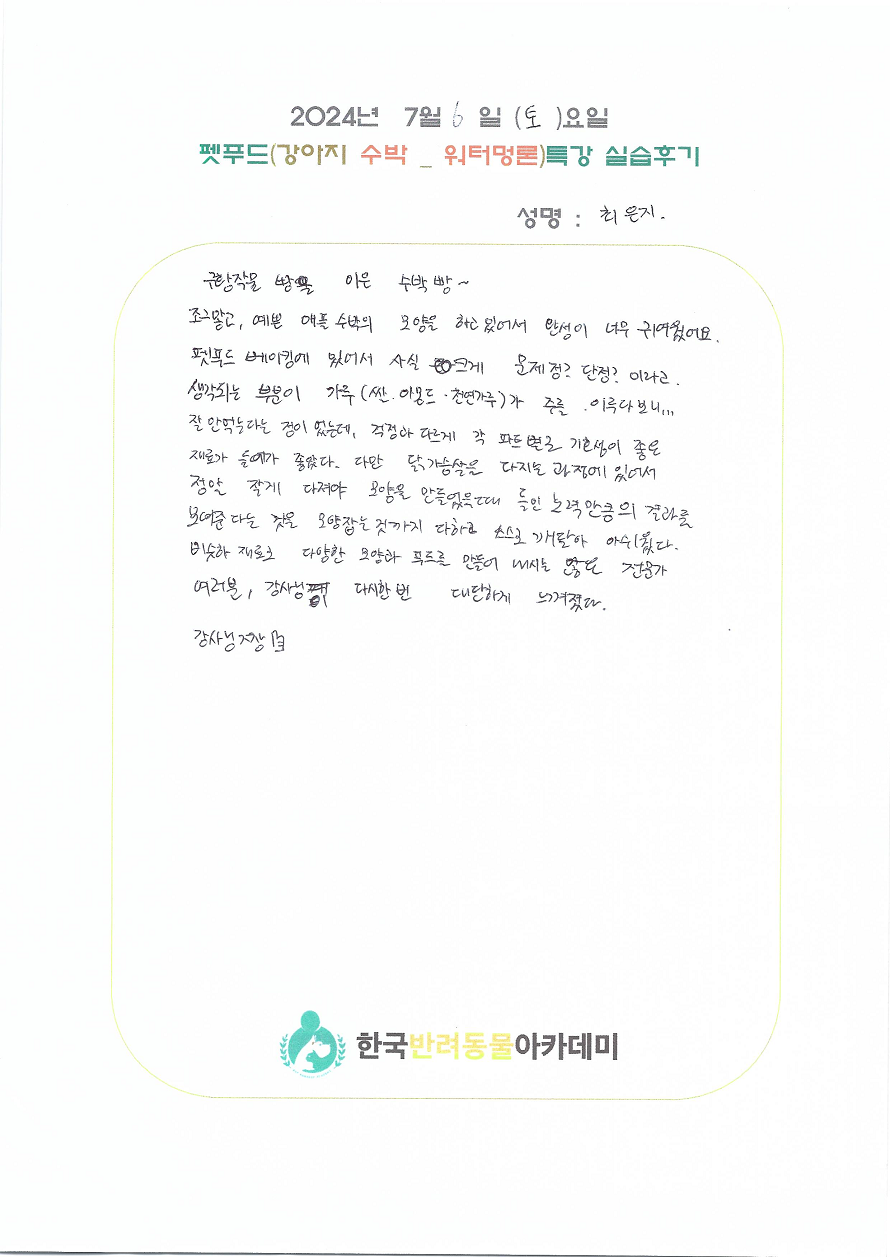 2024년 7월 6일 (토)요일
펫푸드(강아지 수박 _ 워터멍론)특강 실습후기
성명 : 최은지.
수박빵~
조그맣고, 예쁜 애플수박의 모양을 하고 있어서 완성이 너무 귀여웠어요.
펫푸드 베이킹에 있어서 사실 크게 문제점? 단점? 이라고
생각되는 부분이 가루(쌀·아몬드·천연가루)가 주를 이루다보니,,,
잘 안먹는다는 점이 있는데, 걱정과 다르게 각 파트별로 기호성이 좋은
재료가 들어가 좋았다. 다만 닭가슴살을 다지는 과정에 있어서
정말 잘게 다져야 모양을 만들었을때 들인 노력만큼의 결과를
보여준다는 것은 모양잡는것까지 다하고 스스로 깨달아 아쉬웠다.
비슷한 재료로 다양한 모양과 푸드를 만들어 내시는 많은 전문가
여러분, 강사님 다시한번 대단하게 느껴졌다.
강사님짱
한국반려동물아카데미